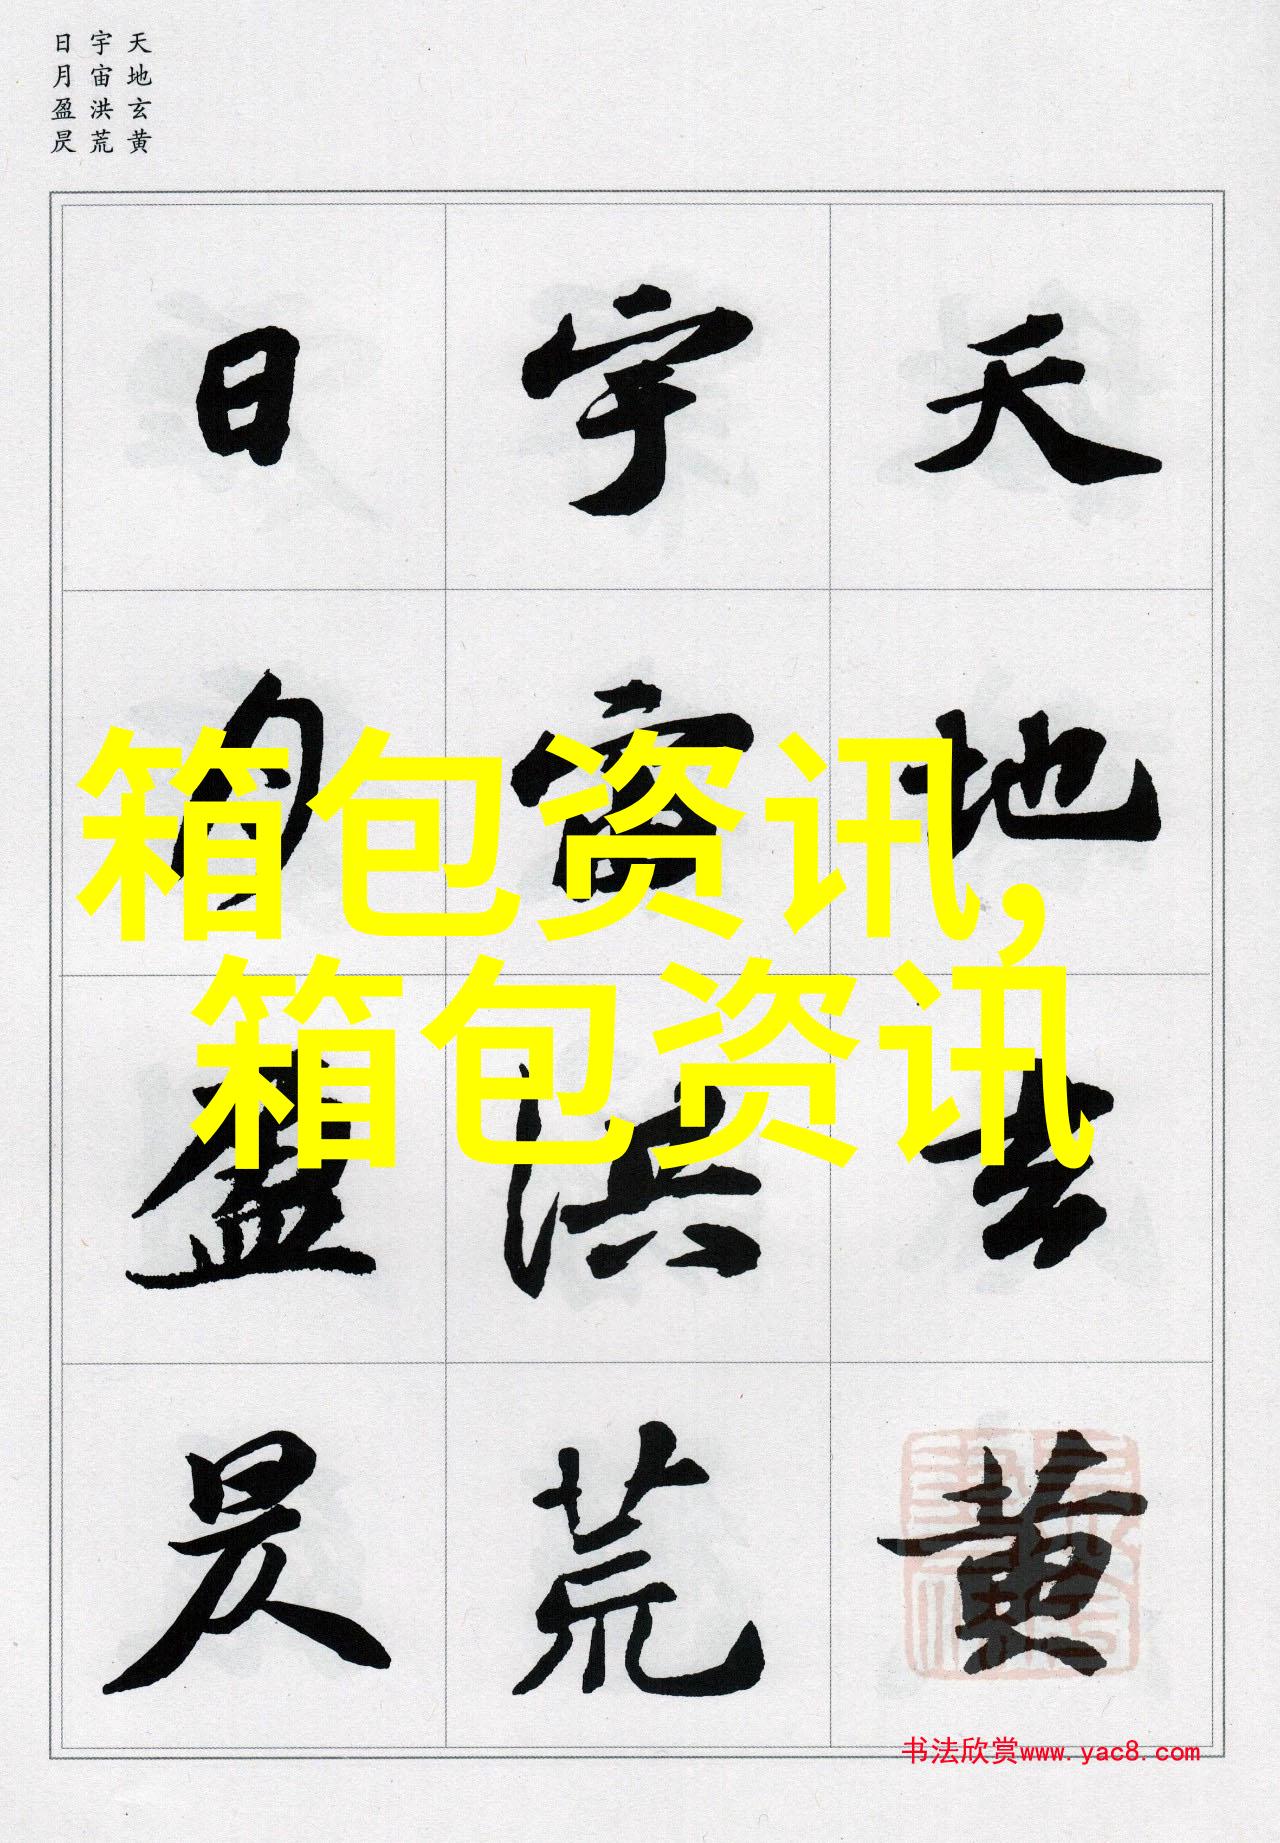 天地玄黄
宇宙洪荒
日月盈昃
天地玄黄
宇宙洪荒
日月盈昃
箱包资讯,
箱包资讯
书法欣赏www.yac8.com